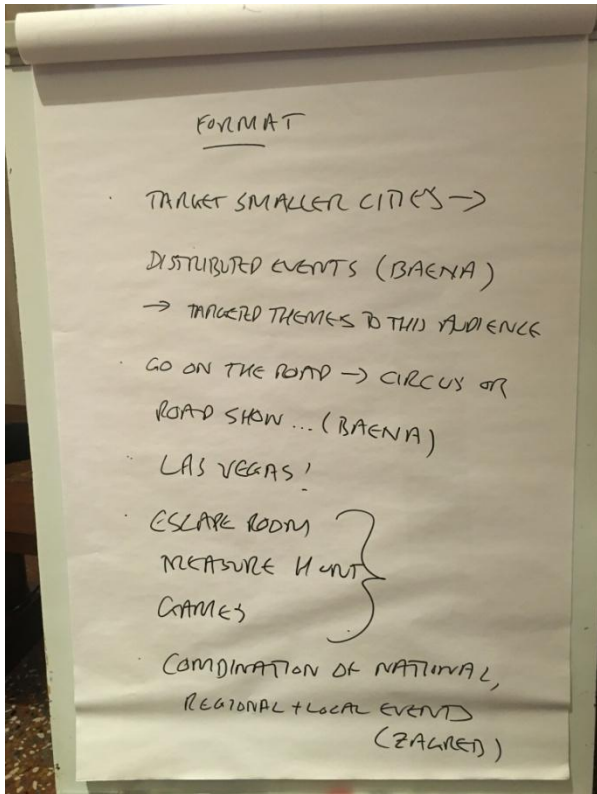 FORMAT
· TARGET SMALLER CITIES →
DISTRIBUTED EVENTS (BAENA)
→ TARGETED THEMES TO THIS AUDIENCE
· GO ON THE ROAD → CIRCUS OR
ROAD SHOW... (BAENA)
· LAS VEGAS!
· ESCAPE ROOM
MEASURE HUNT
GAMES
· COMBINATION OF NATIONAL,
REGIONAL + LOCAL EVENTS
(ZAGREB)